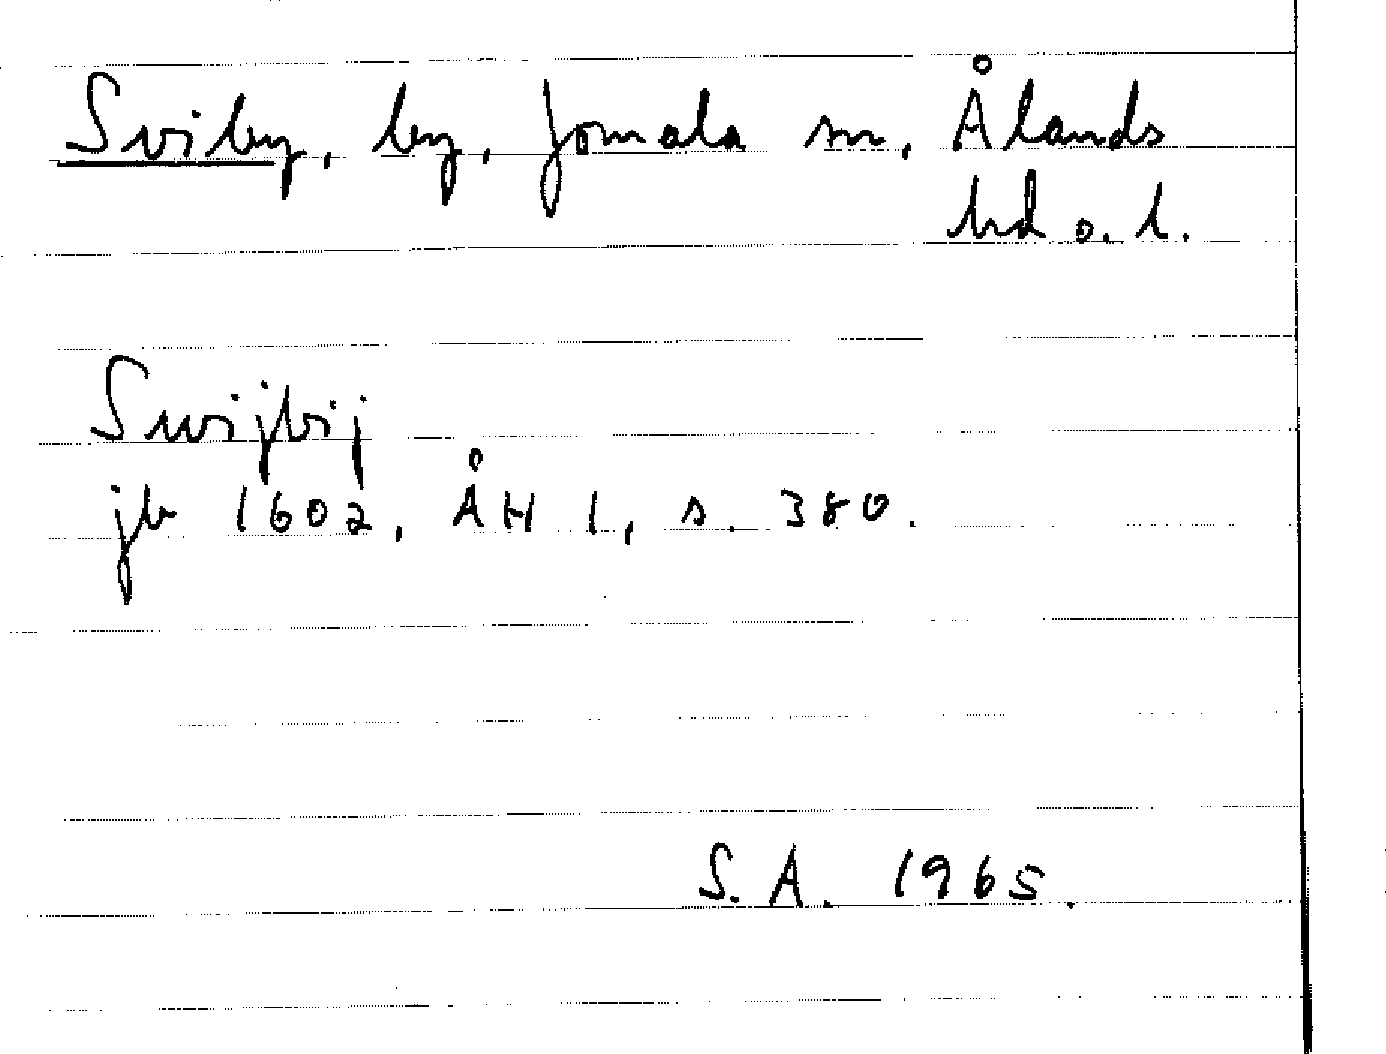 Sviby, by, Jomala sn, Ålands
hd o. l.
Swijbij
jb 1602, ÅH 1, s. 380.
S. A. 1965.